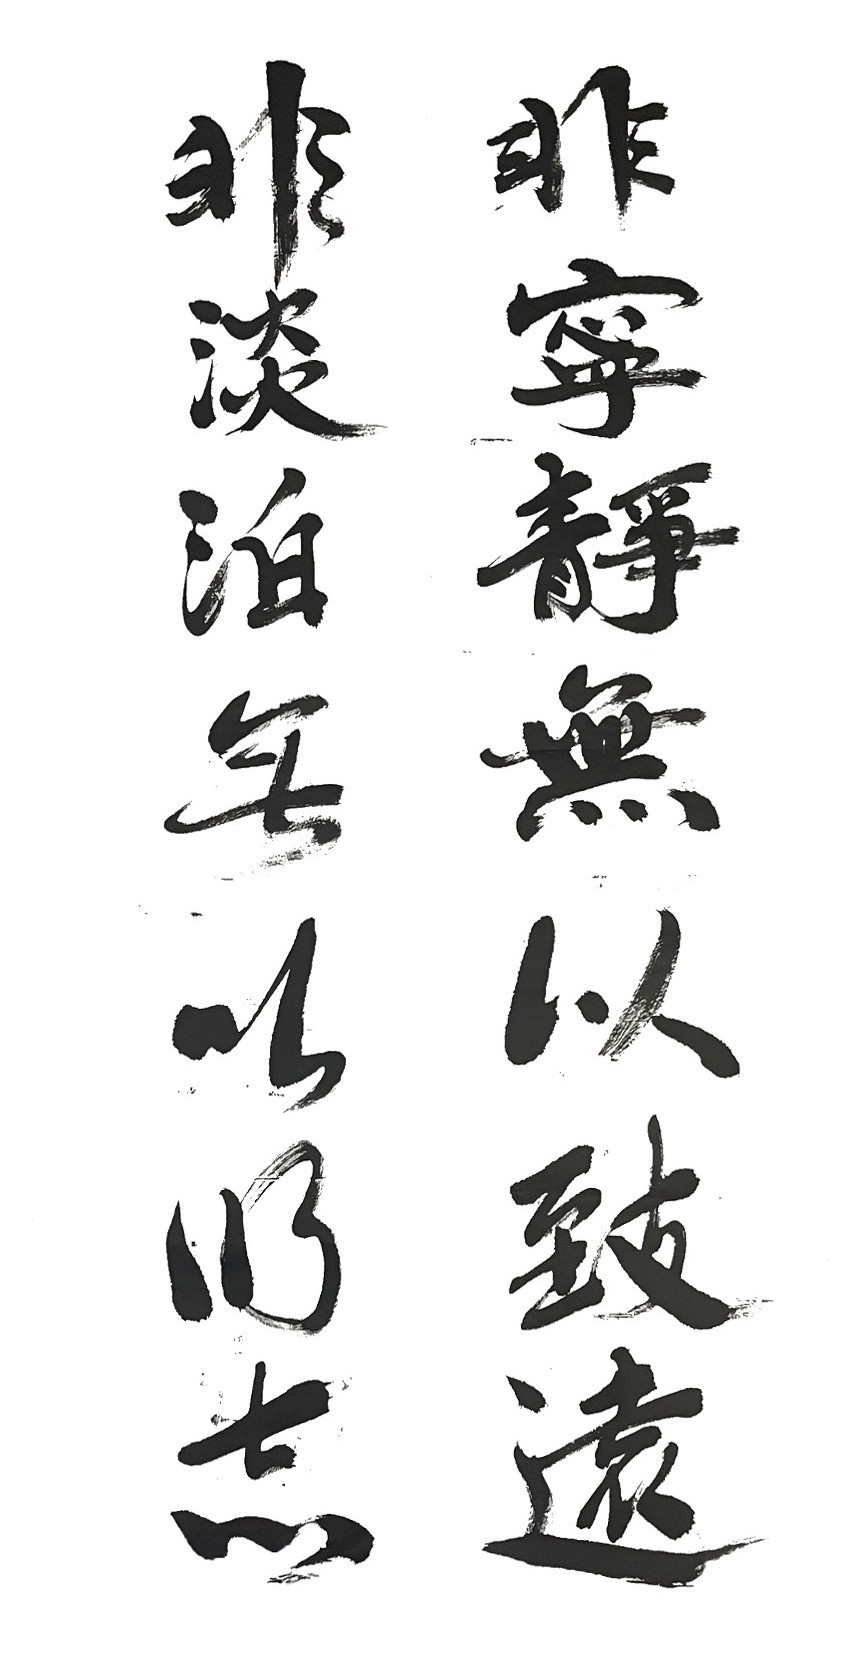 非寧靜無以致遠
非淡泊無以明志